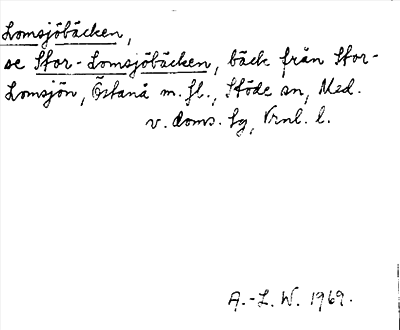 Lomsjöbäcken,
se Stor-Lomsjöbäcken, bäck från Stor-
Lomsjön, Östanå m. fl., Stöde sn, Med.
v. doms. tg, Vrnl. l.
A.-L. W. 1969.